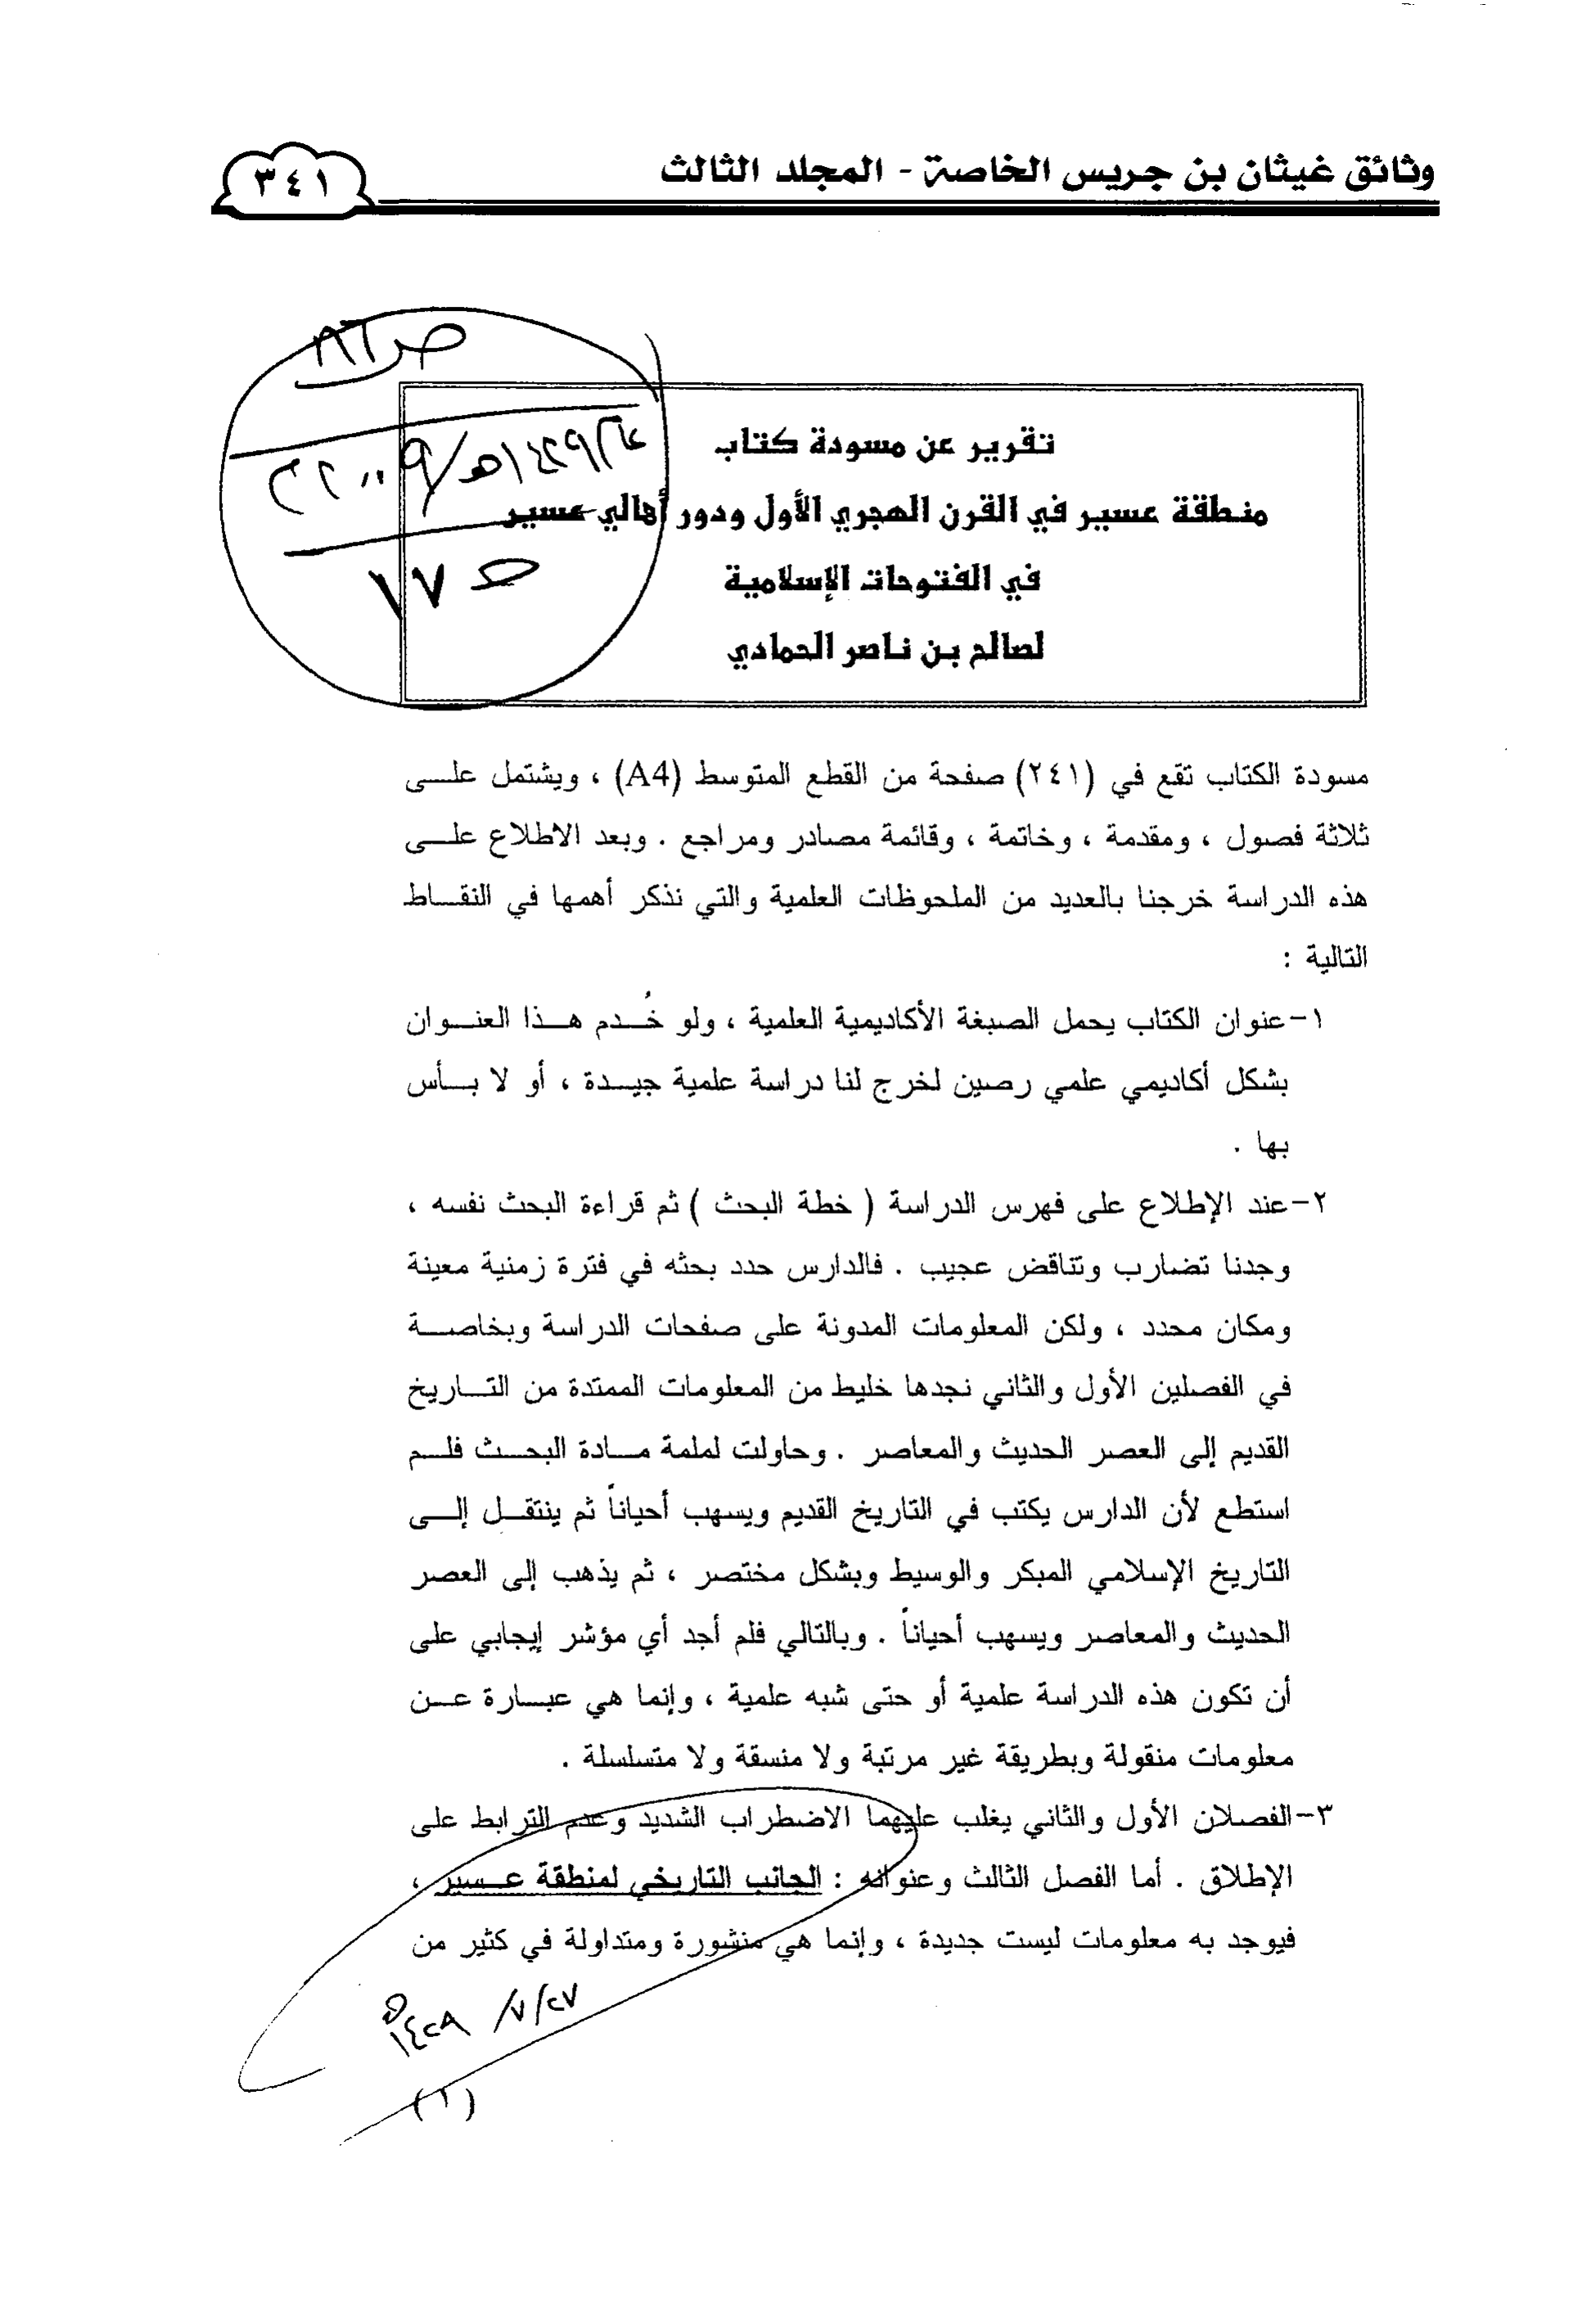 وثائق غيثان بن جريس الخاصة - المجلد الثالث
٣٤١
تقرير عن مسودة كتاب
منطقة عسير في القرن الهجري الأول ودور أهالي عسير
في الفتوحات الإسلامية
لصالح بن ناصر الحمادي
١٧
مسودة الكتاب تقع في (٢٤١) صفحة من القطع المتوسط (A4) ، ويشتمل على
ثلاثة فصول ، ومقدمة ، وخاتمة ، وقائمة مصادر ومراجع . وبعد الاطلاع على
هذه الدراسة خرجنا بالعديد من الملحوظات العلمية والتي نذكر أهمها في النقاط
التالية :
١- عنوان الكتاب يحمل الصبغة الأكاديمية العلمية ، ولو خُدم هذا العنوان
بشكل أكاديمي علمي رصين لخرج لنا دراسة علمية جيدة ، أو لا بأس
بها .
٢- عند الإطلاع على فهرس الدراسة ( خطة البحث ) ثم قراءة البحث نفسه ،
وجدنا تضارب وتناقض عجيب . فالدارس حدد بحثه في فترة زمنية معينة
ومكان محدد ، ولكن المعلومات المدونة على صفحات الدراسة وبخاصة
في الفصلين الأول والثاني نجدها خليط من المعلومات الممتدة من التاريخ
القديم إلى العصر الحديث والمعاصر . وحاولت لملمة مادة البحث فلم
استطع لأن الدارس يكتب في التاريخ القديم ويسهب أحياناً ثم ينتقل إلى
التاريخ الإسلامي المبكر والوسيط وبشكل مختصر ، ثم يذهب إلى العصر
الحديث والمعاصر ويسهب أحياناً . وبالتالي فلم أجد أي مؤشر إيجابي على
أن تكون هذه الدراسة علمية أو حتى شبه علمية ، وإنما هي عبارة عن
معلومات منقولة وبطريقة غير مرتبة ولا منسقة ولا متسلسلة .
٣- الفصلان الأول والثاني يغلب عليهما الاضطراب الشديد وعدم الترابط على
الإطلاق . أما الفصل الثالث وعنوانه : الجانب التاريخي لمنطقة عسير ،
فيوجد به معلومات ليست جديدة ، وإنما هي منشورة ومتداولة في كثير من
(١)